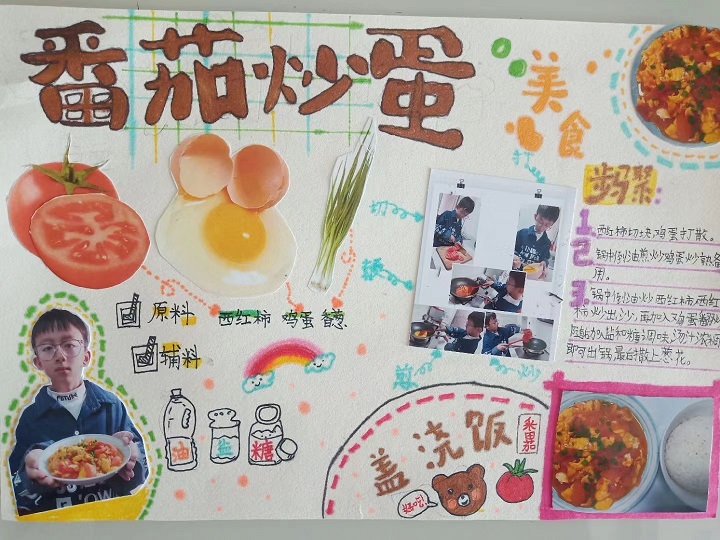 番茄炒蛋
美食
步骤:
1.西红柿切块鸡蛋打散。
2.锅中倒油煎炒鸡蛋炒熟备
用。
3.锅中倒油炒西红柿,西红
柿炒出沙,再加入鸡蛋翻炒
随后加入盐和糖调味汤汁浓稠
即可出锅,最后撒上葱花。
打
切
煎
炒
原料
西红柿 鸡蛋 香葱
辅料
油
盐
糖
盖浇饭
好吃!